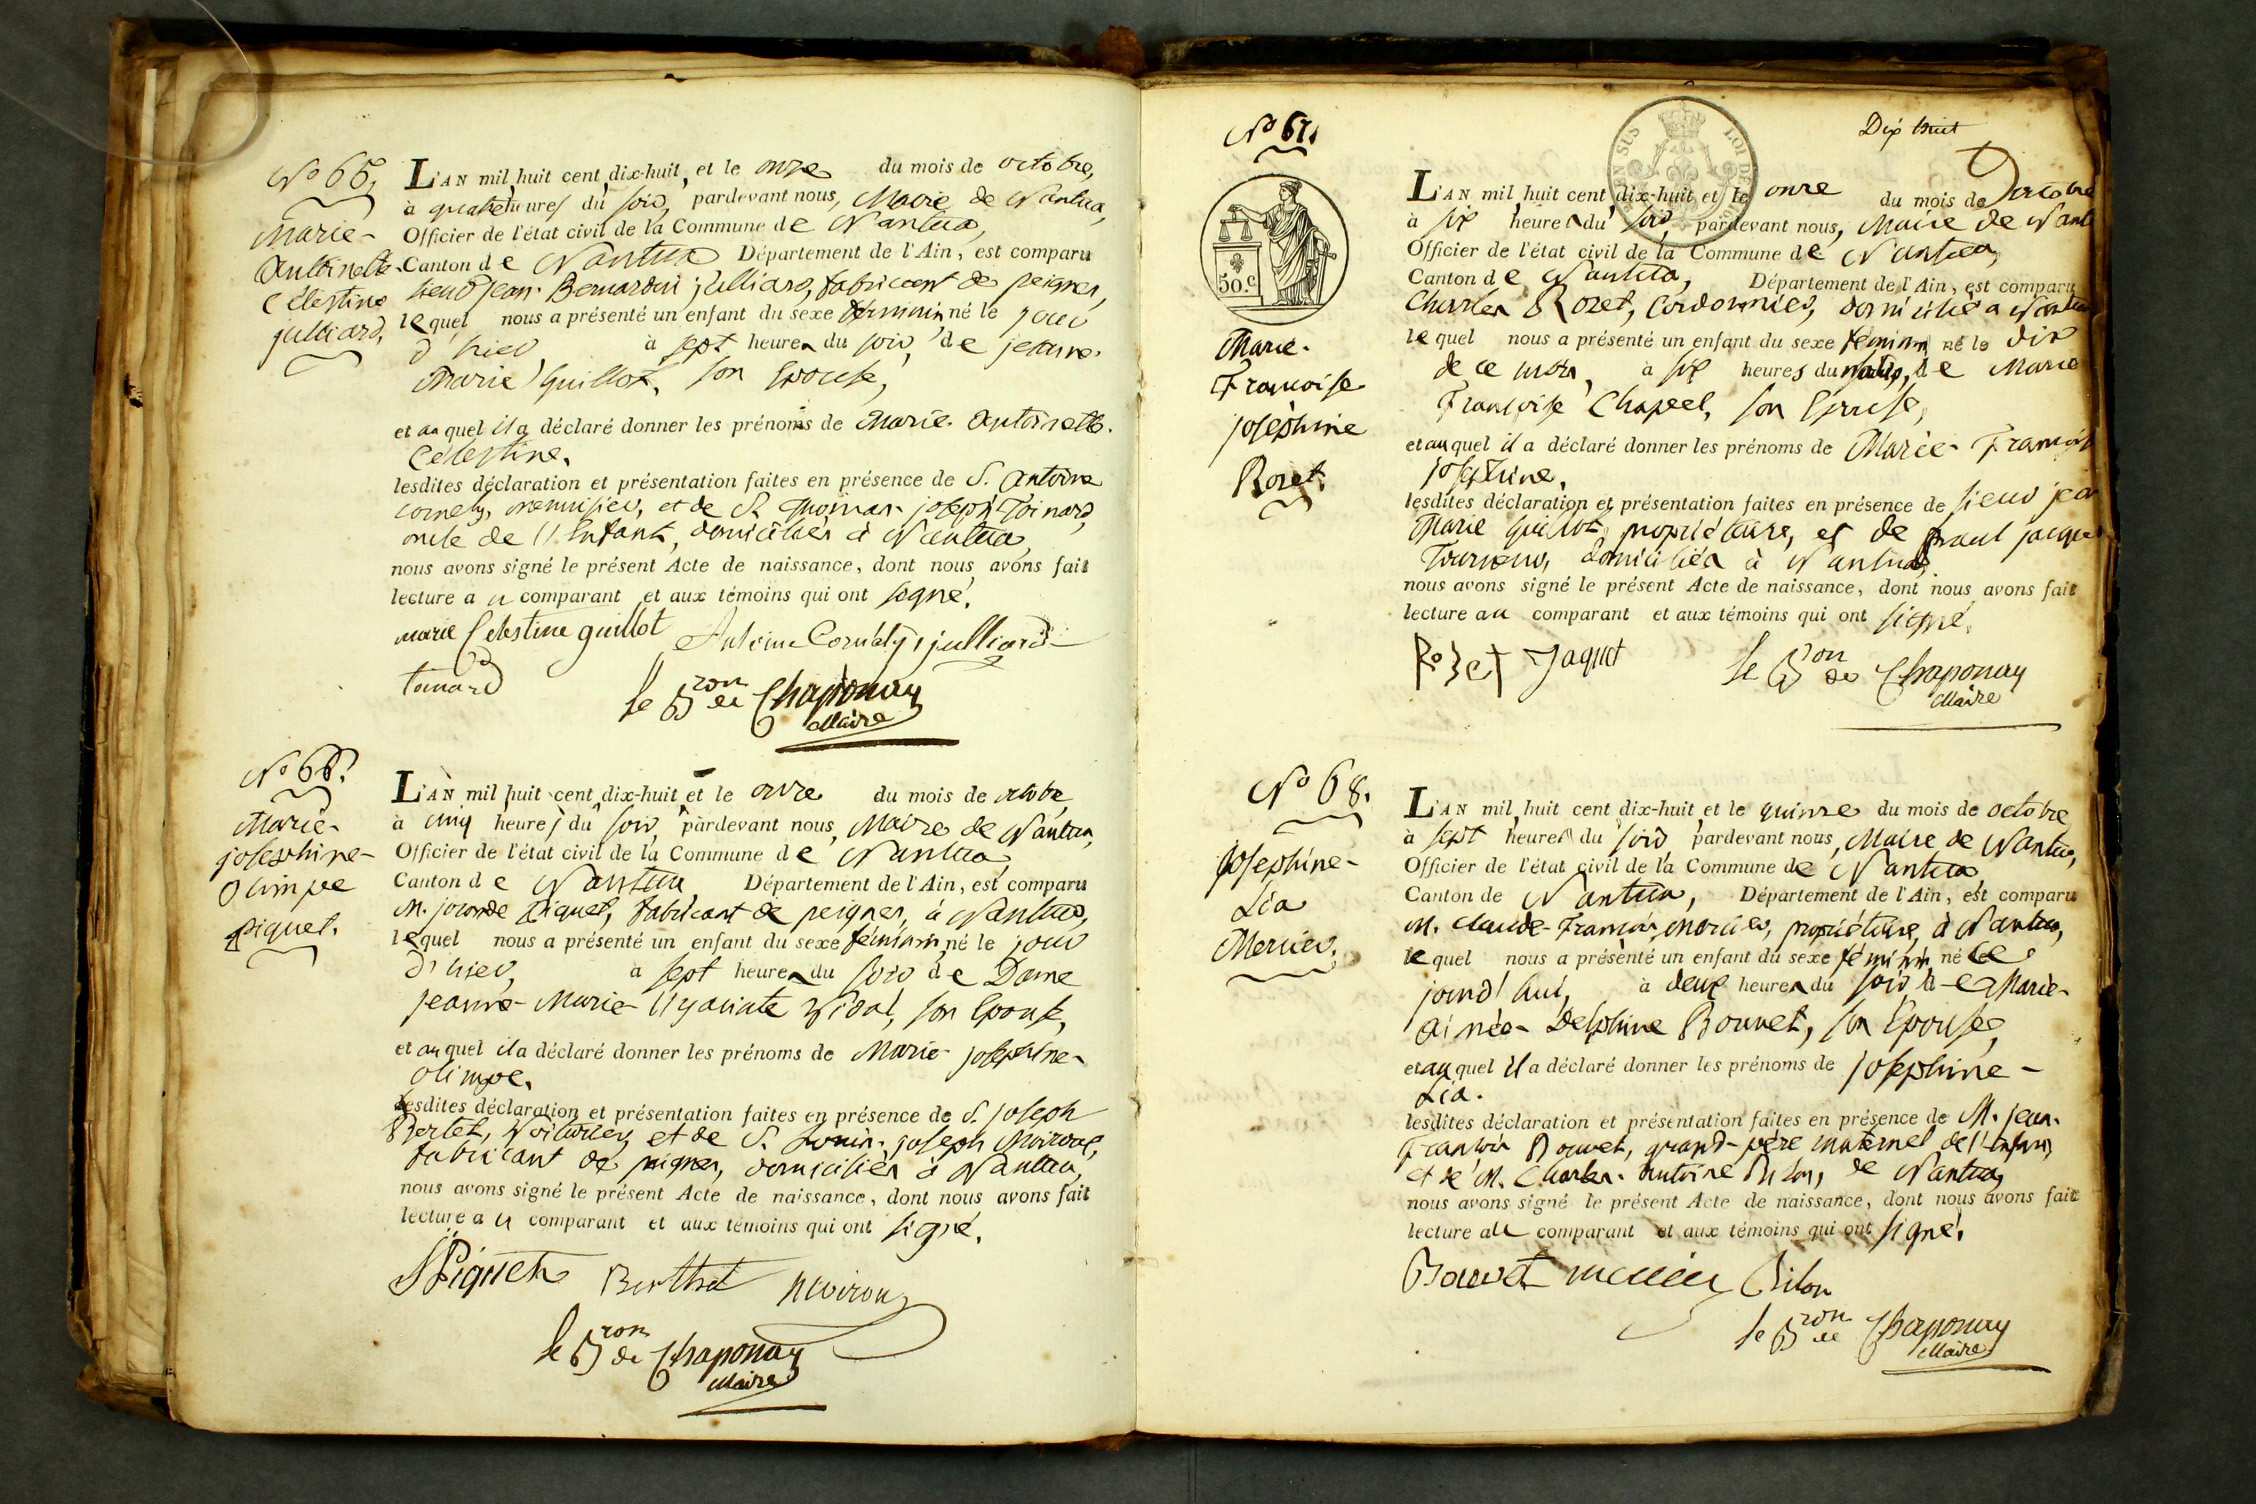 No 65,
Marie-
Antoinette-
Célestine
julliard,
L'AN mil huit cent dix-huit, et le onze du mois de octobre,
à quatre heures du soir, pardevant nous, Maire de Nantua,
Officier de l'état civil de la Commune de Nantua,
Canton de Nantua Département de l'Ain, est comparu
sieur jean-Bernardin julliard, fabricant de peignes,
lequel nous a présenté un enfant du sexe féminin, né le jour
d'hier, à sept heures du soir, de jeanne-
Marie Guillot, son Epouse,
et auquel il a déclaré donner les prénoms de Marie-Antoinette-
Célestine.
lesdites déclaration et présentation faites en présence de S. Antoine
menuisier, et de Sr Thomas-joseph Toinard,
oncle de l'Enfant, domiciliés à Nantua,
nous avons signé le présent Acte de naissance, dont nous avons fait
lecture au comparant et aux témoins qui ont signé.
marie Celestine guillot Antoine julliard
toinard le Bron de Chaponay
Maire
No 66.
Marie-
josephine-
Olimpe
Piquet.
L'AN mil huit cent dix-huit et le onze du mois de octobre
à cinq heures du soir, pardevant nous, Maire de Nantua,
Officier de l'état civil de la Commune de Nantua
Canton de Nantua Département de l'Ain, est comparu
M. joconde Piquet, fabricant de peignes, à Nantua,
lequel nous a présenté un enfant du sexe féminin né le jour
d'hier, à sept heures du soir de Dame
jeanne-Marie-Hyacinte Vidal, son Epouse,
et auquel il a déclaré donner les prénoms de Marie-josephine-
Olimpe.
lesdites déclaration et présentation faites en présence de S. joseph
Bertet, Voiturier, et de S. Louis-joseph
fabricant de peignes, domiciliés à Nantua,
nous avons signé le présent Acte de naissance, dont nous avons fait
lecture au comparant et aux témoins qui ont signé.
Piquet Berthet
le Bron de Chaponay
Maire
Dix huit
No 67.
50.c
LOI DE
Marie-
Françoise
joséphine
Rozet.
L'AN mil huit cent dix-huit et le onze du mois de Octobre
à six heures du soir, pardevant nous, Maire de Nant
Officier de l'état civil de la Commune de Nantua,
Canton de Nantua, Département de l'Ain, est comparu
Charles Rozet, Cordonnier, domicilié à Nantua
lequel nous a présenté un enfant du sexe féminin né le dix
de ce mois, à six heures du matin, de Marie
Françoise Chapel, son Epouse,
et auquel il a déclaré donner les prénoms de Marie-Françoise
josephine.
lesdites déclaration et présentation faites en présence de sieur jean
Marie Guillot, propriétaire, et de Paul jacques
Tourneur, domiciliés à Nantua,
nous avons signé le présent Acte de naissance, dont nous avons fait
lecture au comparant et aux témoins qui ont signé.
Rozet Jaquet le Bron de Chaponay
Maire
No 68.
josephine-
Lia
Mercier.
L'AN mil huit cent dix-huit et le quinze du mois de octobre
à sept heures du soir, pardevant nous, Maire de Nantua,
Officier de l'état civil de la Commune de Nantua
Canton de Nantua, Département de l'Ain, est comparu
M. Claude-François Mercier, propriétaire, à Nantua,
lequel nous a présenté un enfant du sexe féminin né ce
jourd'hui, à deux heures du soir de Marie-
Aimée-Delphine Bouvet, son Epouse,
et auquel il a déclaré donner les prénoms de josephine-
Lia.
lesdites déclaration et présentation faites en présence de M. jean-
François Bouvet, grand-père maternel de l'Enfant,
et de M. Charles-Antoine Pilon, de Nantua,
nous avons signé le présent Acte de naissance, dont nous avons fait
lecture au comparant et aux témoins qui ont signé.
Bouvet mercier Pilon
le Bron de Chaponay
Maire